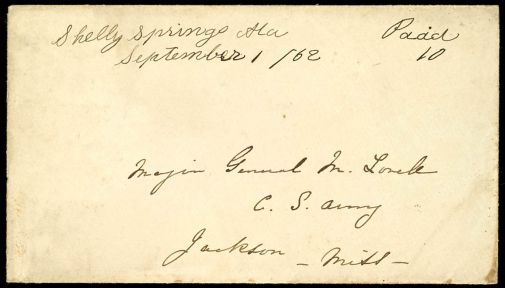 Shelly Springs Ala Paid
September 1 /62 10
Major General M. Lovell
C. S. Army
Jackson - Miss -